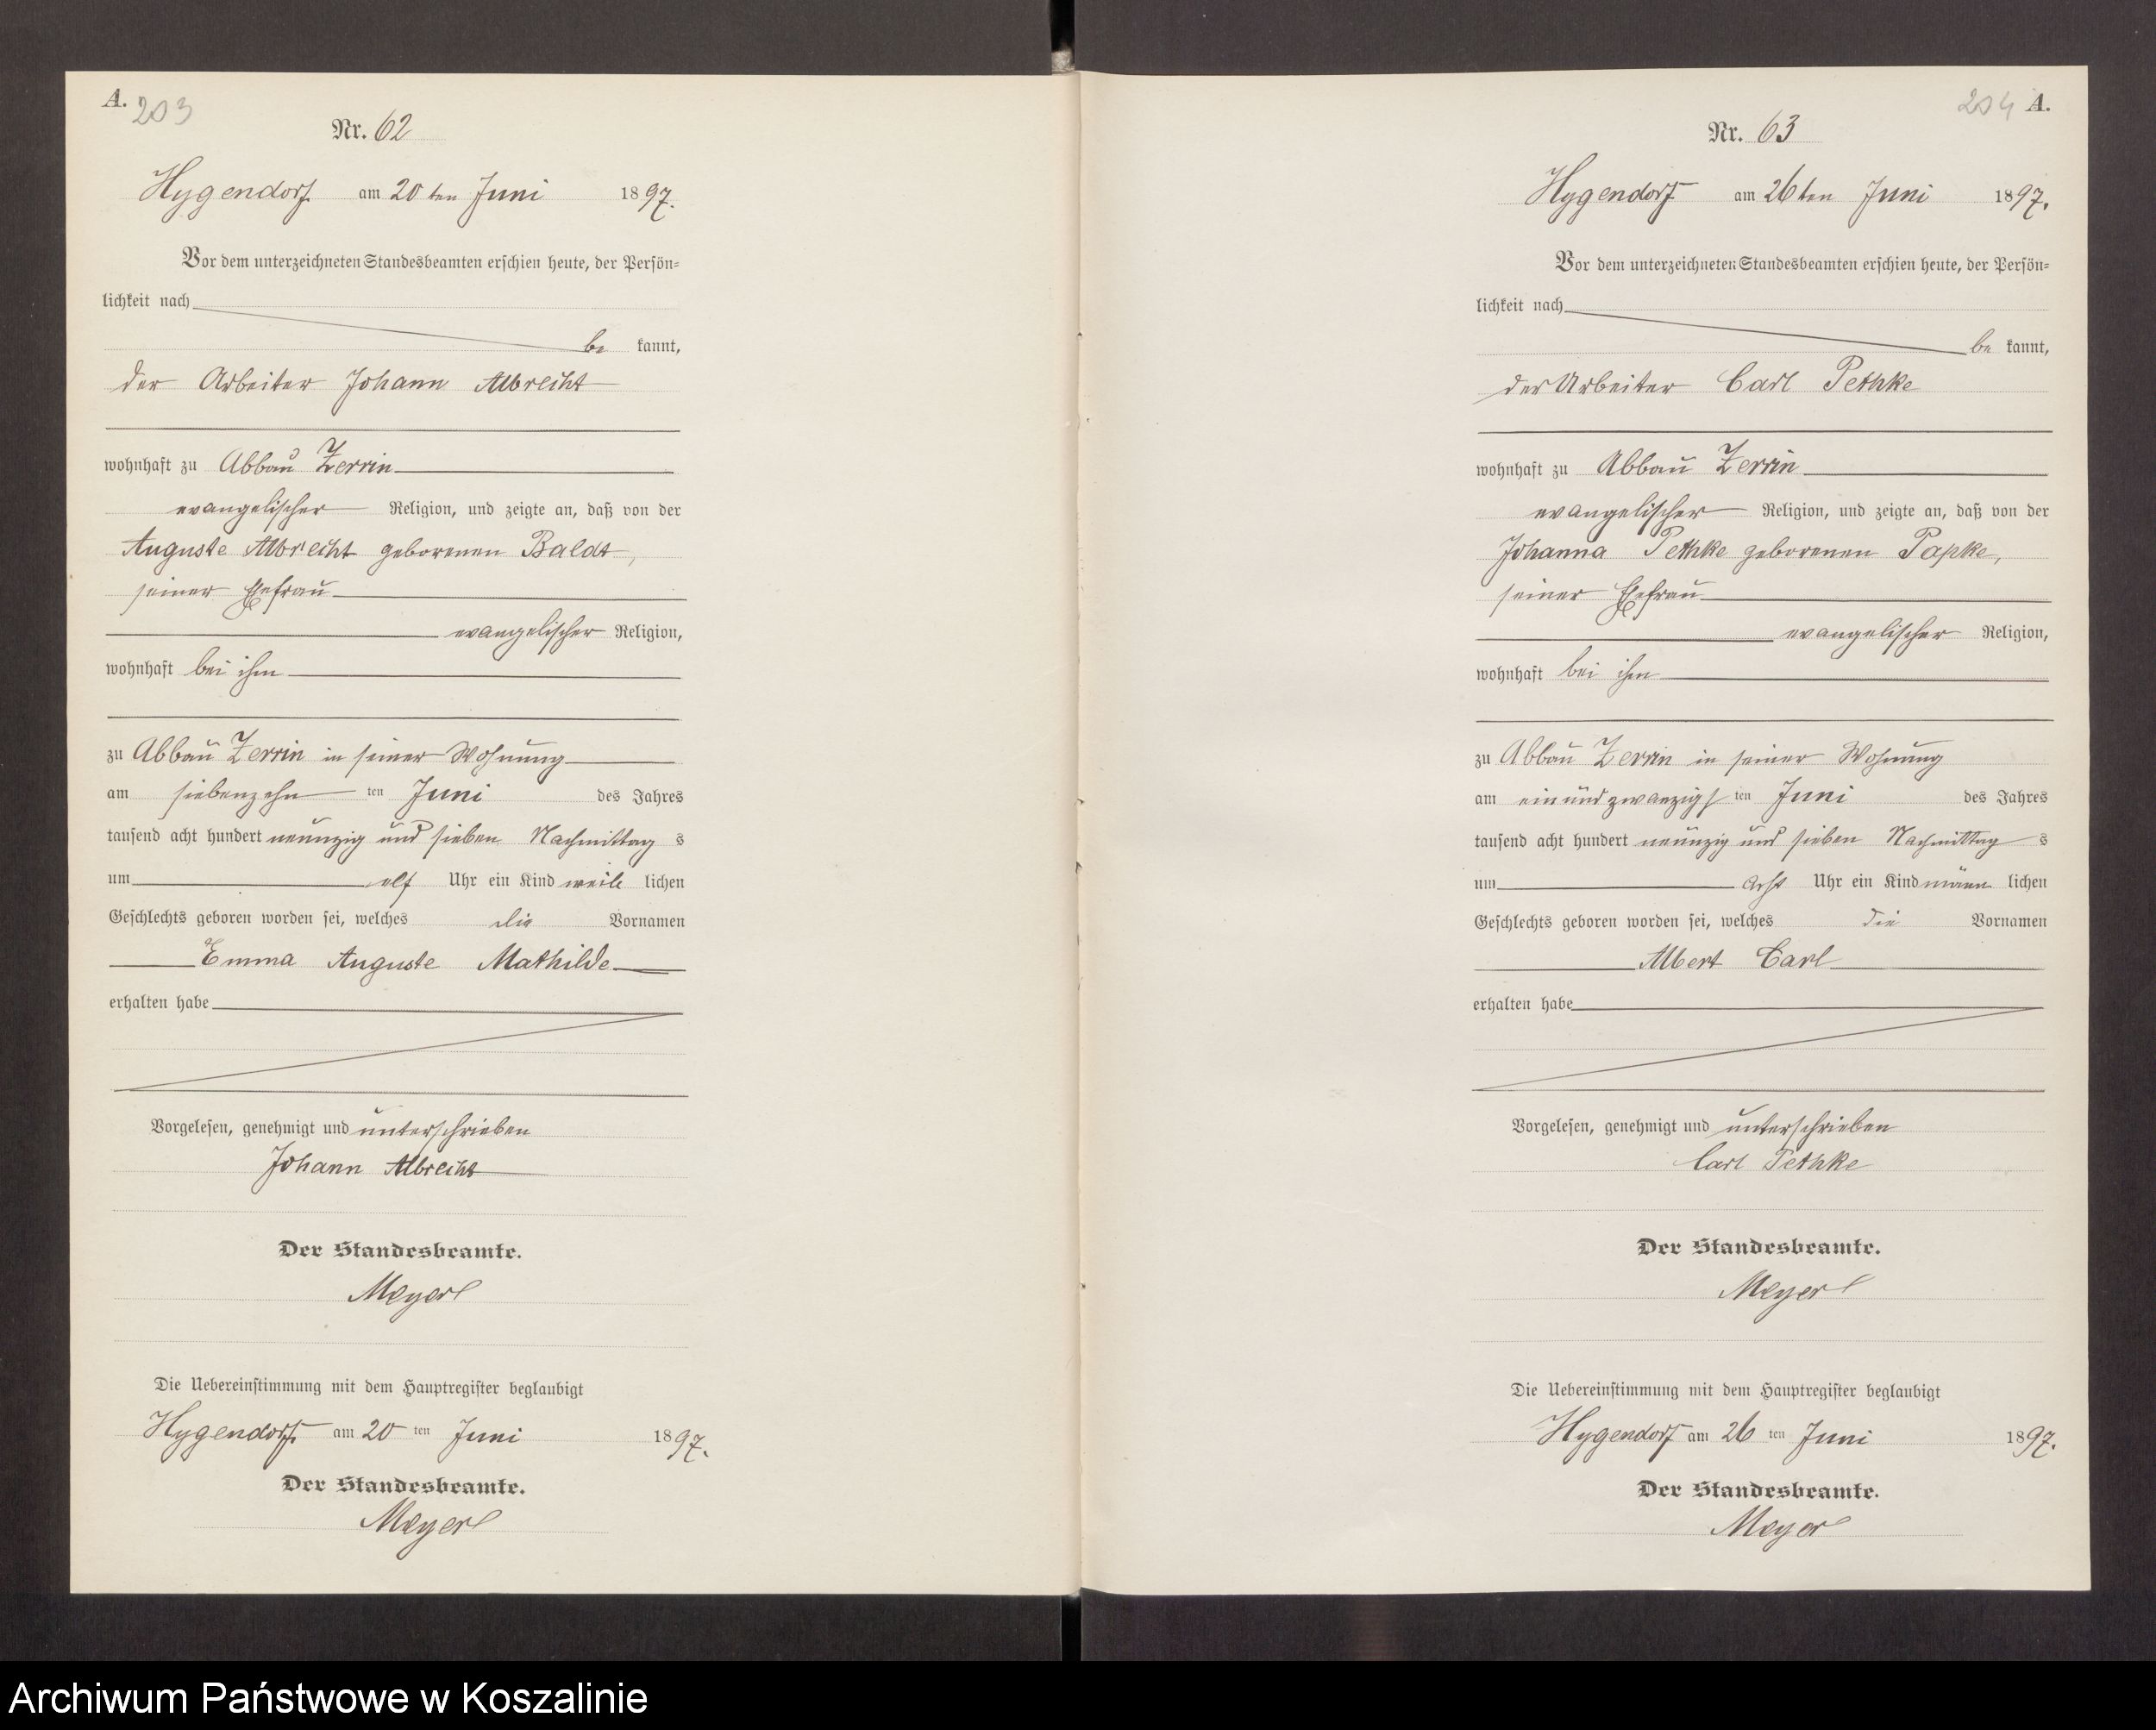 A. 203
Nr. 62
Hygendorf am 20ten Juni 1897.
Vor dem unterzeichneten Standesbeamten erschien heute, der Persön-
lichkeit nach
be kannt,
der Arbeiter Johann Albrecht
wohnhaft zu Abbau Zerrin
evangelischer Religion, und zeigte an, daß von der
Auguste Albrecht geborenen Baldt,
seiner Ehefrau
evangelischer Religion,
wohnhaft bei ihm
zu Abbau Zerrin in seiner Wohnung
am siebenzehn ten Juni des Jahres
tausend acht hundert neunzig und sieben Nachmittag s
um elf Uhr ein Kind weib lichen
Geschlechts geboren worden sei, welches die Vornamen
Emma Auguste Mathilde
erhalten habe
Vorgelesen, genehmigt und unterschrieben
Johann Albrecht
Der Standesbeamte.
Meyer
Die Uebereinstimmung mit dem Hauptregister beglaubigt
Hygendorf am 20 ten Juni 1897.
Der Standesbeamte.
Meyer
204 A.
Nr. 63
Hygendorf am 26ten Juni 1897.
Vor dem unterzeichneten Standesbeamten erschien heute, der Persön-
lichkeit nach
be kannt,
der Arbeiter Carl Pethke
wohnhaft zu Abbau Zerrin
evangelischer Religion, und zeigte an, daß von der
Johanna Pethke geborenen Papke,
seiner Ehefrau
evangelischer Religion,
wohnhaft bei ihm
zu Abbau Zerrin in seiner Wohnung
am ein und zwanzigs ten Juni des Jahres
tausend acht hundert neunzig und sieben Nachmittag s
um acht Uhr ein Kind männ lichen
Geschlechts geboren worden sei, welches die Vornamen
Albert Carl
erhalten habe
Vorgelesen, genehmigt und unterschrieben
Carl Pethke
Der Standesbeamte.
Meyer
Die Uebereinstimmung mit dem Hauptregister beglaubigt
Hygendorf am 26 ten Juni 1897.
Der Standesbeamte.
Meyer
Archiwum Państwowe w Koszalinie